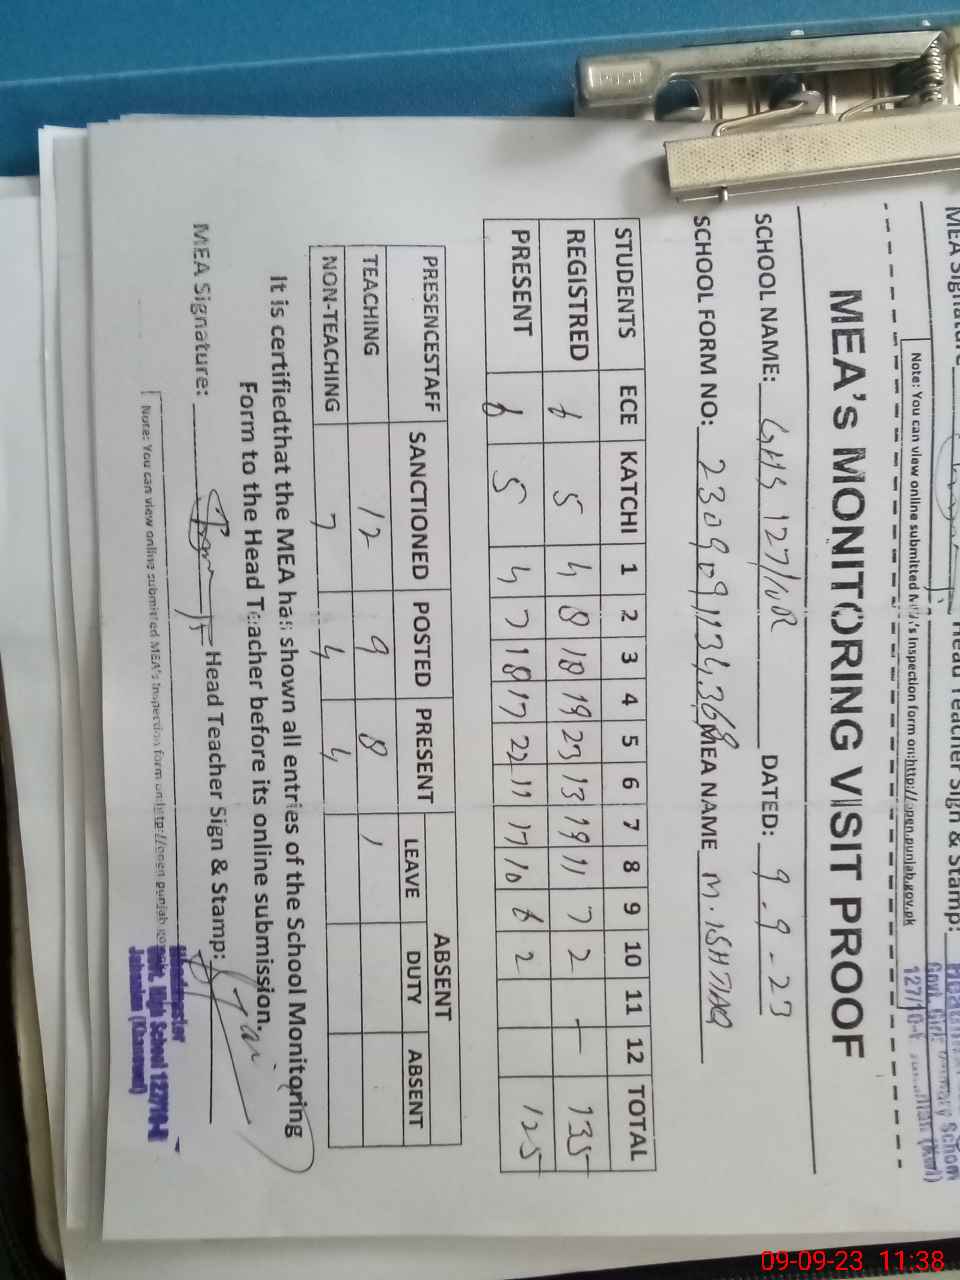 MEA Signature
Head Teacher Sign & Stamp:
Note: You can view online submitted MEA's Inspection form on:http://open.punjab.gov.pk
MEA's MONITORING VISIT PROOF
SCHOOL NAME: GHS 127/10R DATED: 9-9-23
SCHOOL FORM NO: MEA NAME M. ISHTAQ
STUDENTS ECE KATCHI 1 2 3 4 5 6 7 8 9 10 11 12 TOTAL
REGISTRED 6 5 4 8 18 19 23 13 19 11 7 2 - 135
PRESENT 6 5 4 7 18 17 22 11 17 10 6 2 125
PRESENCESTAFF SANCTIONED POSTED PRESENT ABSENT
LEAVE DUTY ABSENT
TEACHING 12 9 8 1
NON-TEACHING 7 4 4
It is certifiedthat the MEA has shown all entries of the School Monitoring
Form to the Head Teacher before its online submission.
MEA Signature: Head Teacher Sign & Stamp:
Headmaster
Govt. High School 127/10-R
Jahanian (Khanewal)
Note: You can view online submitted MEA's Inspection form on:http://open.punjab.gov.pk
09-09-23 11:38